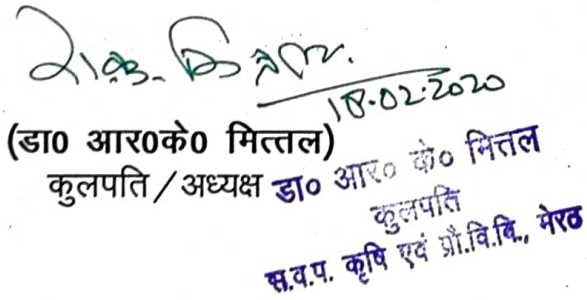 18.02.2020
(डा0 आर0के0 मित्तल)
कुलपति/अध्यक्ष
डा० आर० के० मित्तल
कुलपति
स.व.प. कृषि एवं प्रौ.वि.वि., मेरठ